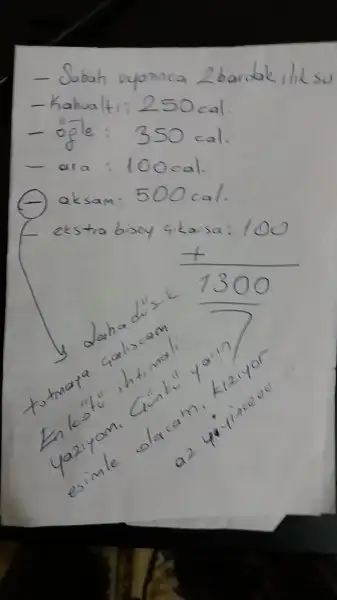 - Sabah uyanınca 2 bardak ılık su
- Kahvaltı: 250 cal.
- öğle : 350 cal.
- ara : 100 cal.
- akşam: 500 cal.
- ekstra bişey çıkarsa: 100
+
1300
daha düşük
tutmaya çalışcam
En kötü ihtimali
yazıyom. Çünkü yarın
eşimle olacam, kızıyor
az yiyincee